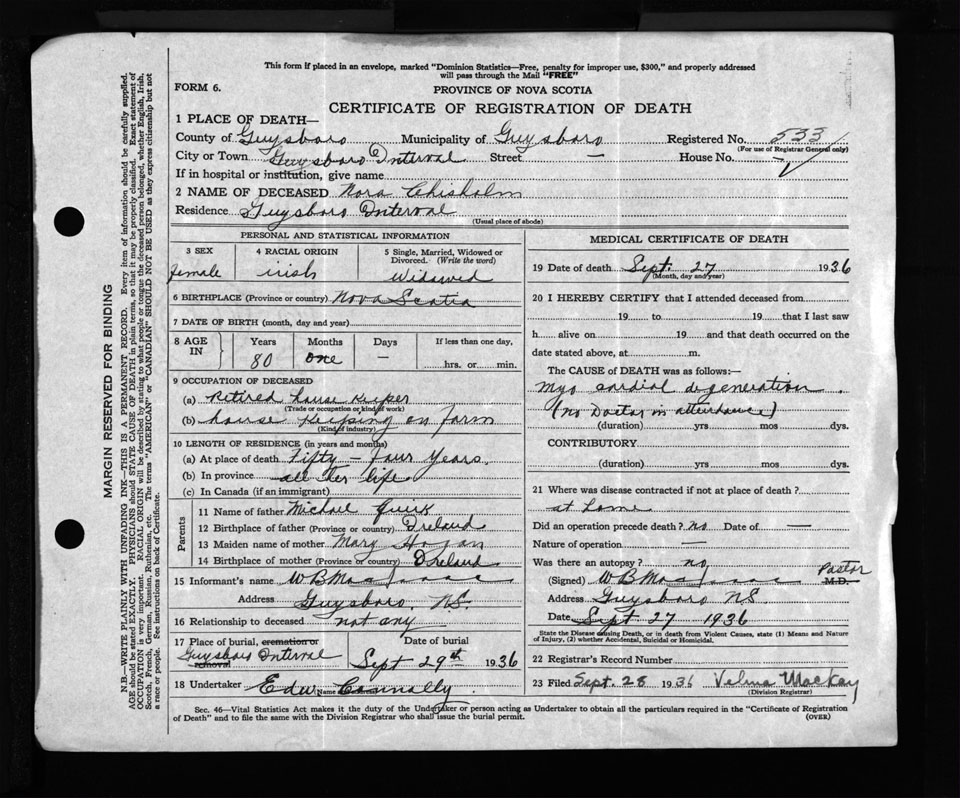 This form if placed in an envelope, marked "Dominion Statistics—Free, penalty for improper use, $300," and properly addressed
will pass through the Mail "FREE"
FORM 6.
PROVINCE OF NOVA SCOTIA
CERTIFICATE OF REGISTRATION OF DEATH
1 PLACE OF DEATH—
County of Guysboro Municipality of Guysboro Registered No. 533
(For use of Registrar General only)
City or Town Guysboro Interval Street — House No. -
If in hospital or institution, give name
2 NAME OF DECEASED Nora Chisholm
Residence Guysboro Interval
(Usual place of abode)
PERSONAL AND STATISTICAL INFORMATION
3 SEX
female
4 RACIAL ORIGIN
irish
5 Single, Married, Widowed or
Divorced. (Write the word)
Widowed
6 BIRTHPLACE (Province or country) Nova Scotia
7 DATE OF BIRTH (month, day and year)
8 AGE
IN
Years
80
Months
one
Days
—
If less than one day,
hrs. or min.
9 OCCUPATION OF DECEASED
(a) Retired house Keeper
(Trade or occupation or kind of work)
(b) house Keeping on farm
(Kind of industry)
10 LENGTH OF RESIDENCE (in years and months)
(a) At place of death Fifty - four Years
(b) In province all her life
(c) In Canada (if an immigrant)
Parents
11 Name of father Michael Quirk
12 Birthplace of father (Province or country) Ireland
13 Maiden name of mother Mary Hogan
14 Birthplace of mother (Province or country) Ireland
15 Informant's name W B Mac Isaac
Address Guysboro, NS.
16 Relationship to deceased not any
17 Place of burial, cremation or
removal
Guysboro Interval
Date of burial
Sept 29th 1936
18 Undertaker Edw Connolly
Name
MEDICAL CERTIFICATE OF DEATH
19 Date of death Sept. 27 1936
(Month, day and year)
20 I HEREBY CERTIFY that I attended deceased from
19 to 19 that I last saw
h alive on 19 and that death occurred on the
date stated above, at m.
The CAUSE of DEATH was as follows:—
Myo cardial degeneration
(no Doctor in attendance)
(duration) yrs mos dys.
CONTRIBUTORY
(duration) yrs mos dys.
21 Where was disease contracted if not at place of death?
at home
Did an operation precede death? no Date of —
Nature of operation —
Was there an autopsy? no
(Signed) W B Mac Isaac Pastor M.D.
Address Guysboro NS.
Date Sept 27 1936
State the Disease causing Death, or in death from Violent Causes, state (1) Means and Nature
of Injury, (2) whether Accidental, Suicidal or Homicidal.
22 Registrar's Record Number
23 Filed Sept. 28 1936 Velma MacKay
(Division Registrar)
Sec. 46—Vital Statistics Act makes it the duty of the Undertaker or person acting as Undertaker to obtain all the particulars required in the "Certificate of Registration
of Death" and to file the same with the Division Registrar who shall issue the burial permit.
(OVER)
MARGIN RESERVED FOR BINDING
N.B.—WRITE PLAINLY WITH UNFADING INK—THIS IS A PERMANENT RECORD. Every item of information should be carefully supplied.
AGE should be stated EXACTLY. PHYSICIANS should STATE CAUSE OF DEATH in plain terms, so that it may be properly classified. Exact statement of
OCCUPATION is very important. RACIAL ORIGIN will be described by stating to what people or tongue the deceased person belonged, whether English, Irish,
Scotch, French, German, Russian, Ruthenian, etc. The terms "AMERICAN" or "CANADIAN" SHOULD NOT BE USED as they express citizenship but not
a race or people. See instructions on back of Certificate.